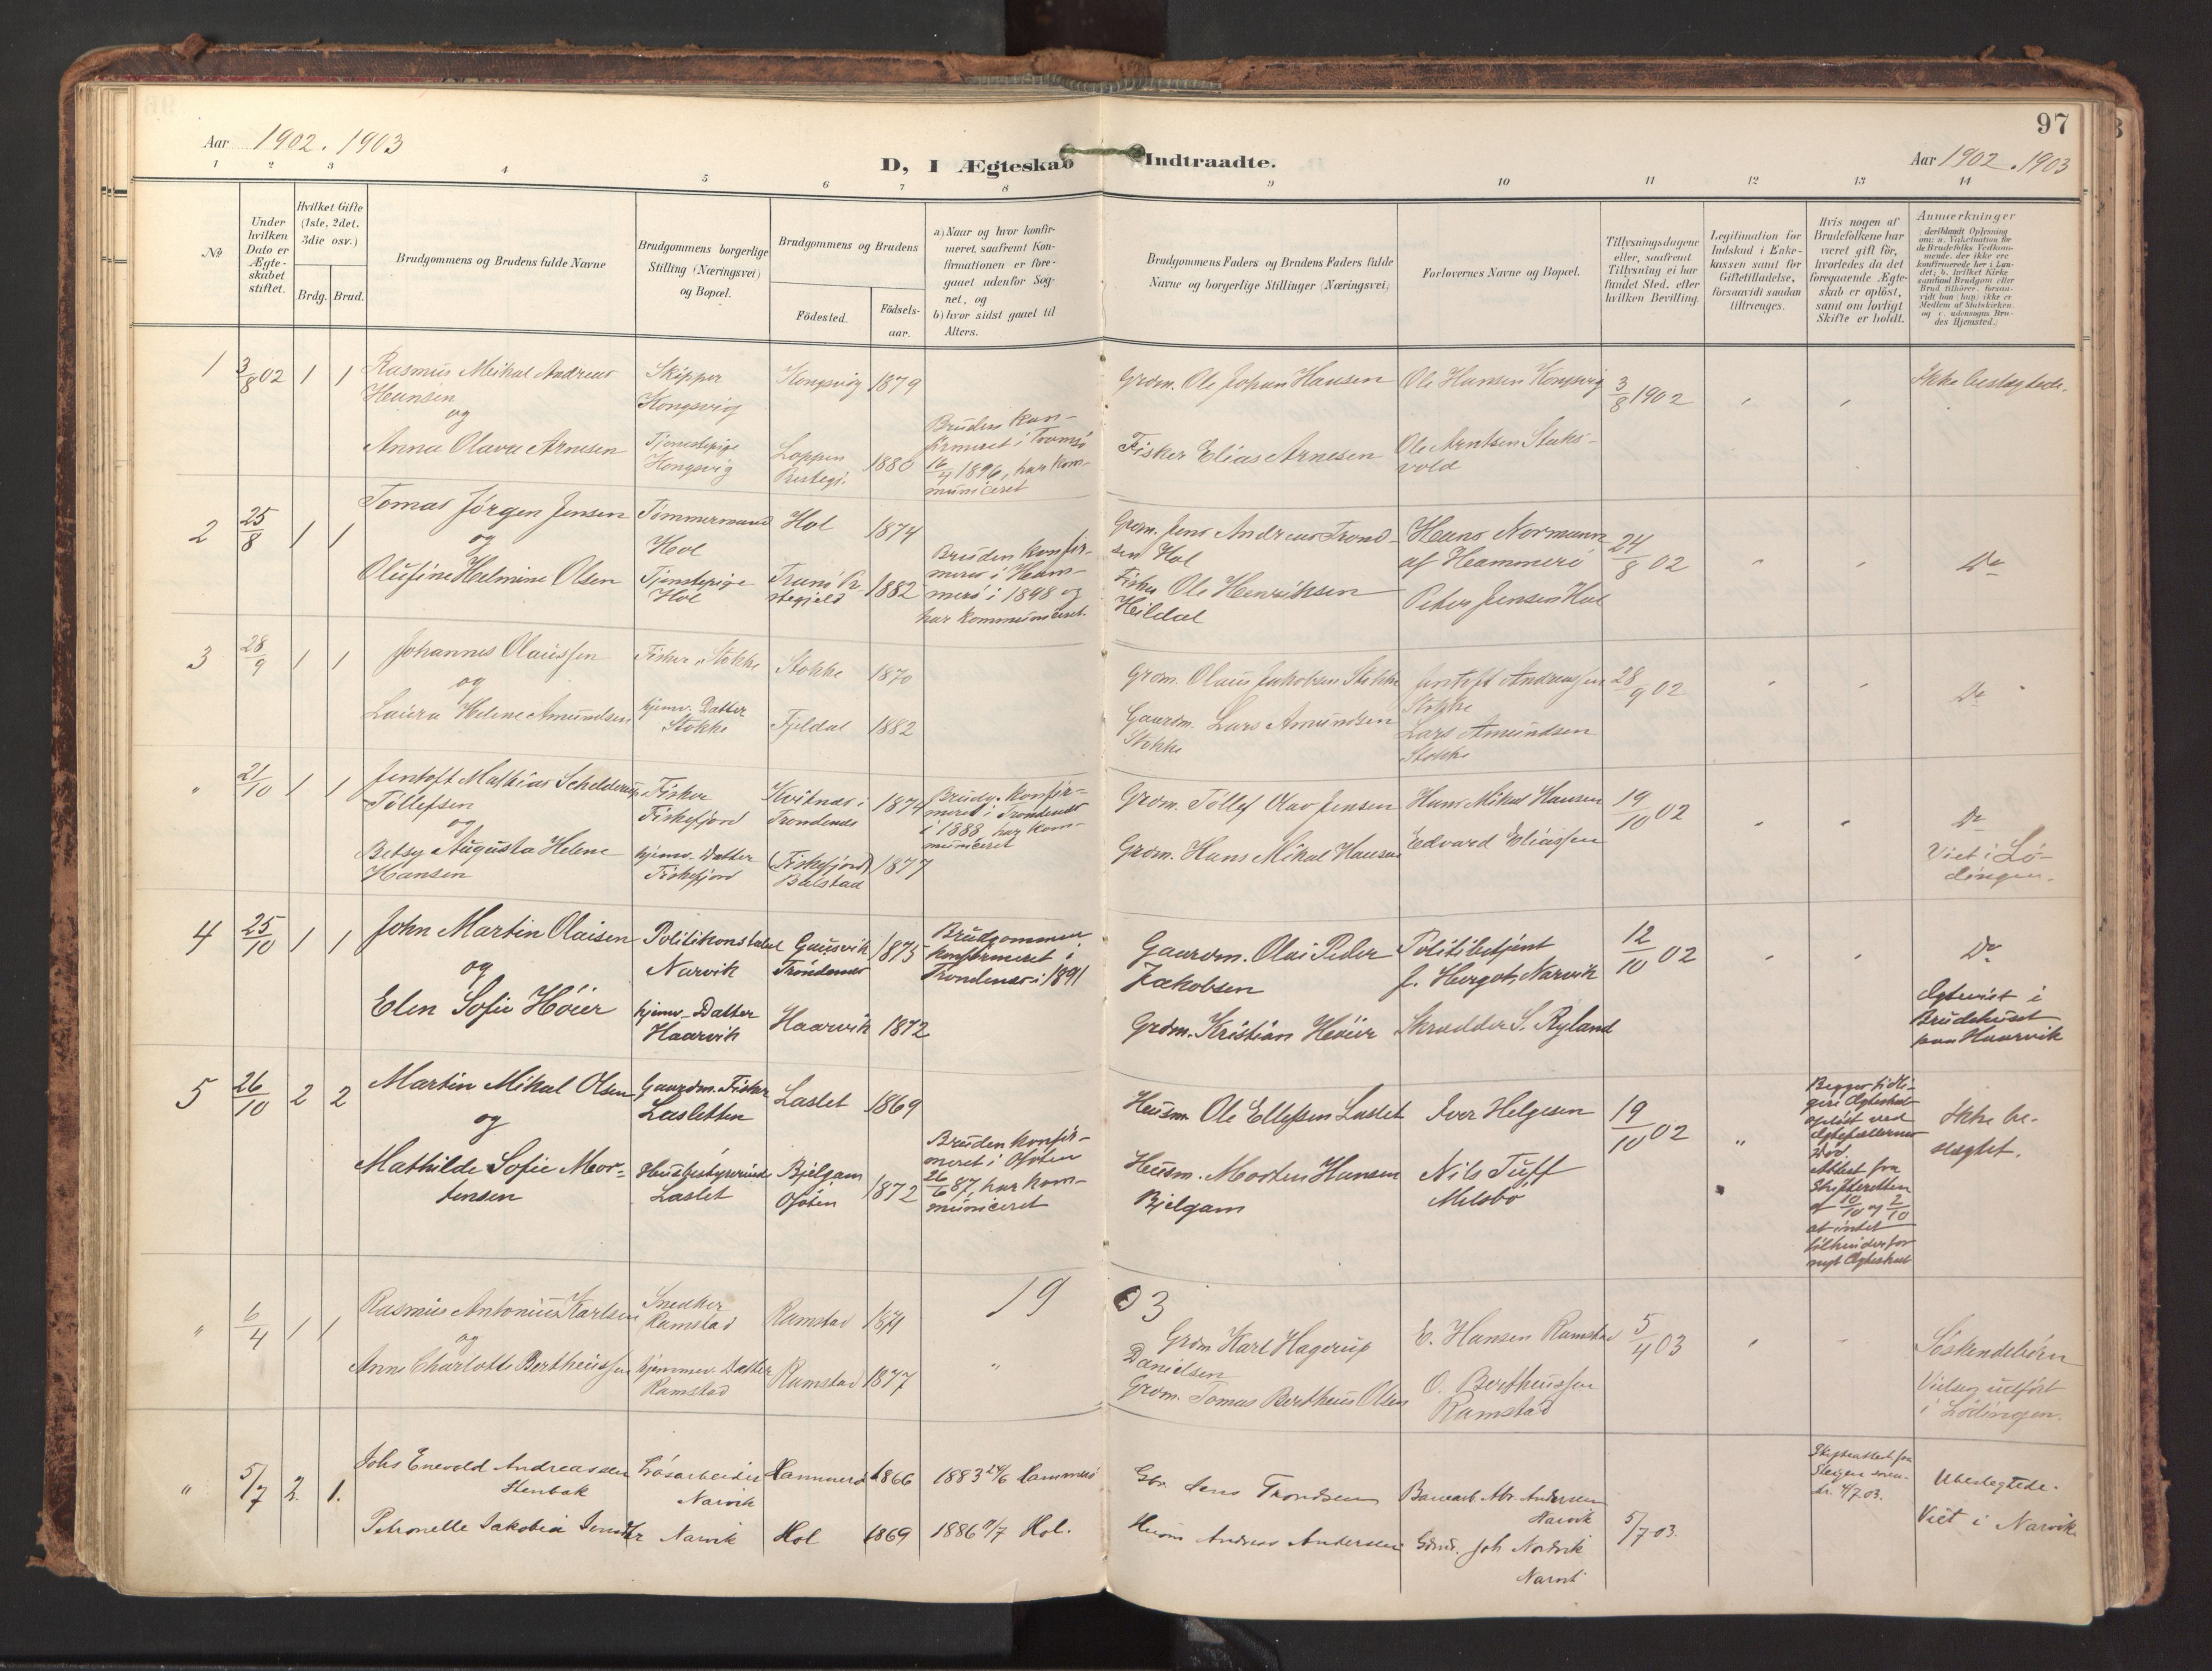 97
Aar 1902. 1903
D, I Ægteskab Indtraadte.
Aar 1902. 1903
1 2 3 4 5 6 7 8 9 10 11 12 13 14
No
Under hvilken Dato er Ægteskabet stiftet.
Hvilket Gifte (1ste, 2det, 3die osv.)
Brdg. Brud.
Brudgommens og Brudens fulde Navne
Brudgommens borgerlige Stilling (Næringsvei) og Bopæl.
Brudgommens og Brudens
Fødested.
Fødselsaar.
a) Naar og hvor konfirmeret, saafremt Konfirmationen er foregaaet udenfor Sognet, og
b) hvor sidst gaaet til Alters.
Brudgommens Faders og Brudens Faders fulde Navne og borgerlige Stillinger (Næringsvei)
Forlovernes Navne og Bopæl.
Tillysningsdagene eller, saafremt Tillysning ei har fundet Sted, efter hvilken Bevilling.
Legitimation for Indskud i Enkekassen samt for Giftetilladelse, forsaavidt saadan tiltrænges.
Hvis nogen af Brudefolkene har været gift før, hvorledes da det foregaaende Ægteskab er opløst, samt om lovligt Skifte er holdt.
Anmærkninger (deriblandt Oplysning om: a. Vakcination for de Brudefolks Vedkommende, der ikke ere konfirmerede her i Landet; b. hvilket Kirkesamfund Brudgom eller Brud tilhører, forsaavidt han (hun) ikke er Medlem af Statskirken, og c. udensogns Brudes Hjemsted.)
1 3/8 02 1 1 Rasmus Meikal Andreas
Hansen
og
Anna Olava Arnesen
Skipper
Kongsvig
Tjenestepige
Kongsvig
Kongsvig 1879
Loppen
Prestegj. 1880
Bruden kon-
firmeret i Tromsø
16/4 1896, har kom-
municeret
Grdm. Ole Johan Hansen
Fisker Elias Arnesen
Ole Hansen Kongsvig
Ole Arntsen Staks-
vold
3/8 1902 " "
Ikke beslægtede.
2 25/8 1 1 Tomas Jørgen Jensen
og
Olufine Helmine Olsen
Tømmermand
Hol
Tjenstepige
Hol
Hol 1874
Tranø Præ-
stegjeld 1882
Bruden konfir-
meret i Ham-
merø i 1898 og
har kommuniceret.
Grdm. Jens Andreas Trond-
sen Hol
Fisker Ole Henriksen
Heildal
Hans Normann
af Hammerø
Peter Jensen Hol
24/8 02 " "
Do
3 28/9 1 1 Johannes Olaussen
og
Laura Helene Amundsen
Fisker, Stokke
hjemv. Datter
Stokke
Stokke 1870
Fjeldal 1882
Grdm. Olaus Jakobsen Stokke
Gaardm. Lars Amundsen
Stokke
Jentoft Andreassen
Stokke
Lars Amundsen
Stokke
28/9 02 " "
Do
" 21/10 1 1 Jentoft Mathias Schelderup
Tollefsen
og
Betsy Augusta Helene
Hansen
Fisker
Fiskefjord
hjemv. Datter
Fiskefjord
Kvitnes i
Trondenes 1874
(Fiskefjord)
Balstad 1877
Brudg. konfir-
meret i Trondenes
i 1888, har kom-
municeret
Grdm. Tollef Olav Jensen
Grdm. Hans Mikal Hansen
Hans Mikal Hansen
Edvard Eliassen
19/10 02 " "
Do
Viet i Lø-
dingen.
4 25/10 1 1 John Martin Olaisen
og
Elen Sofie Høier
Politikonstabel
Narvik
hjemv. Datter
Haarvik
Gausvik
Trondenes 1875
Haarvik 1872
Brudgommen
konfirmeret i
Trondenes i 1891
Gaardm. Olai Peder
Jakobsen
Grdm. Kristian Høier
Politibetjent
J. Hergot, Narvik
Skrædder S. Ryland
12/10 02 " "
Do
Egteviet i
Brudehuset
paa Haarvik
5 26/10 2 2 Martin Mikal Olsen
og
Mathilde Sofie Mor-
tensen
Gaardm. Fisker
Lasletten
Husbestyrerinde
Laslet
Laslet 1869
Bjelgam
Ofoten 1872
Bruden konfir-
meret i Ofoten
26/6 87, har kom-
municeret
Husm. Ole Ellefsen Laslet
Husm. Morten Hansen
Bjelgam
Iver Helgesen
Nils Tuff
Melsbø
19/10 02 "
Begges tidli-
gere Ægteskab
opløst ved
Ægtefællernes
Død.
Attest fra
Skifteretten
af 10/10 og 2/10
at intet
til hinder for
nyt Ægteskab
Ikke be-
slægtet.
1903
" 6/4 1 1 Rasmus Antonius Karlsen
og
Anne Charlotte Bertheussen
Snedker
Ramstad
hjemmev. Datter
Ramstad
Ramstad 1871
Ramstad 1877
"
Grdm Karl Hagerup
Danielsen
Grdm. Tomas Bertheus Olsen
E. Hansen Ramstad
O. Bertheussen
Ramstad
5/4 03 " "
Søskendebørn
Vielsen udført
i Lødingen.
" 5/7 2. 1. Johs Enevold Andreassen
Stenbak
Petronelle Jakobia Jens
Løsarbeider
Narvik
Narvik
Hammerø 1866 1883 24/6 Hammerø
Hol 1869 1886 11/7 Hol.
Gbr. Jens Trondsen
Husm Andreas Andersen
Banearb. Abr. Andersen
Narvik
Grdbr. Joh Nordvik
Narvik
5/7 03.
Skifteattest fra
Steigen soren-
skr. 4/7 03.
Ubeslegtede.
Viet i Narvik